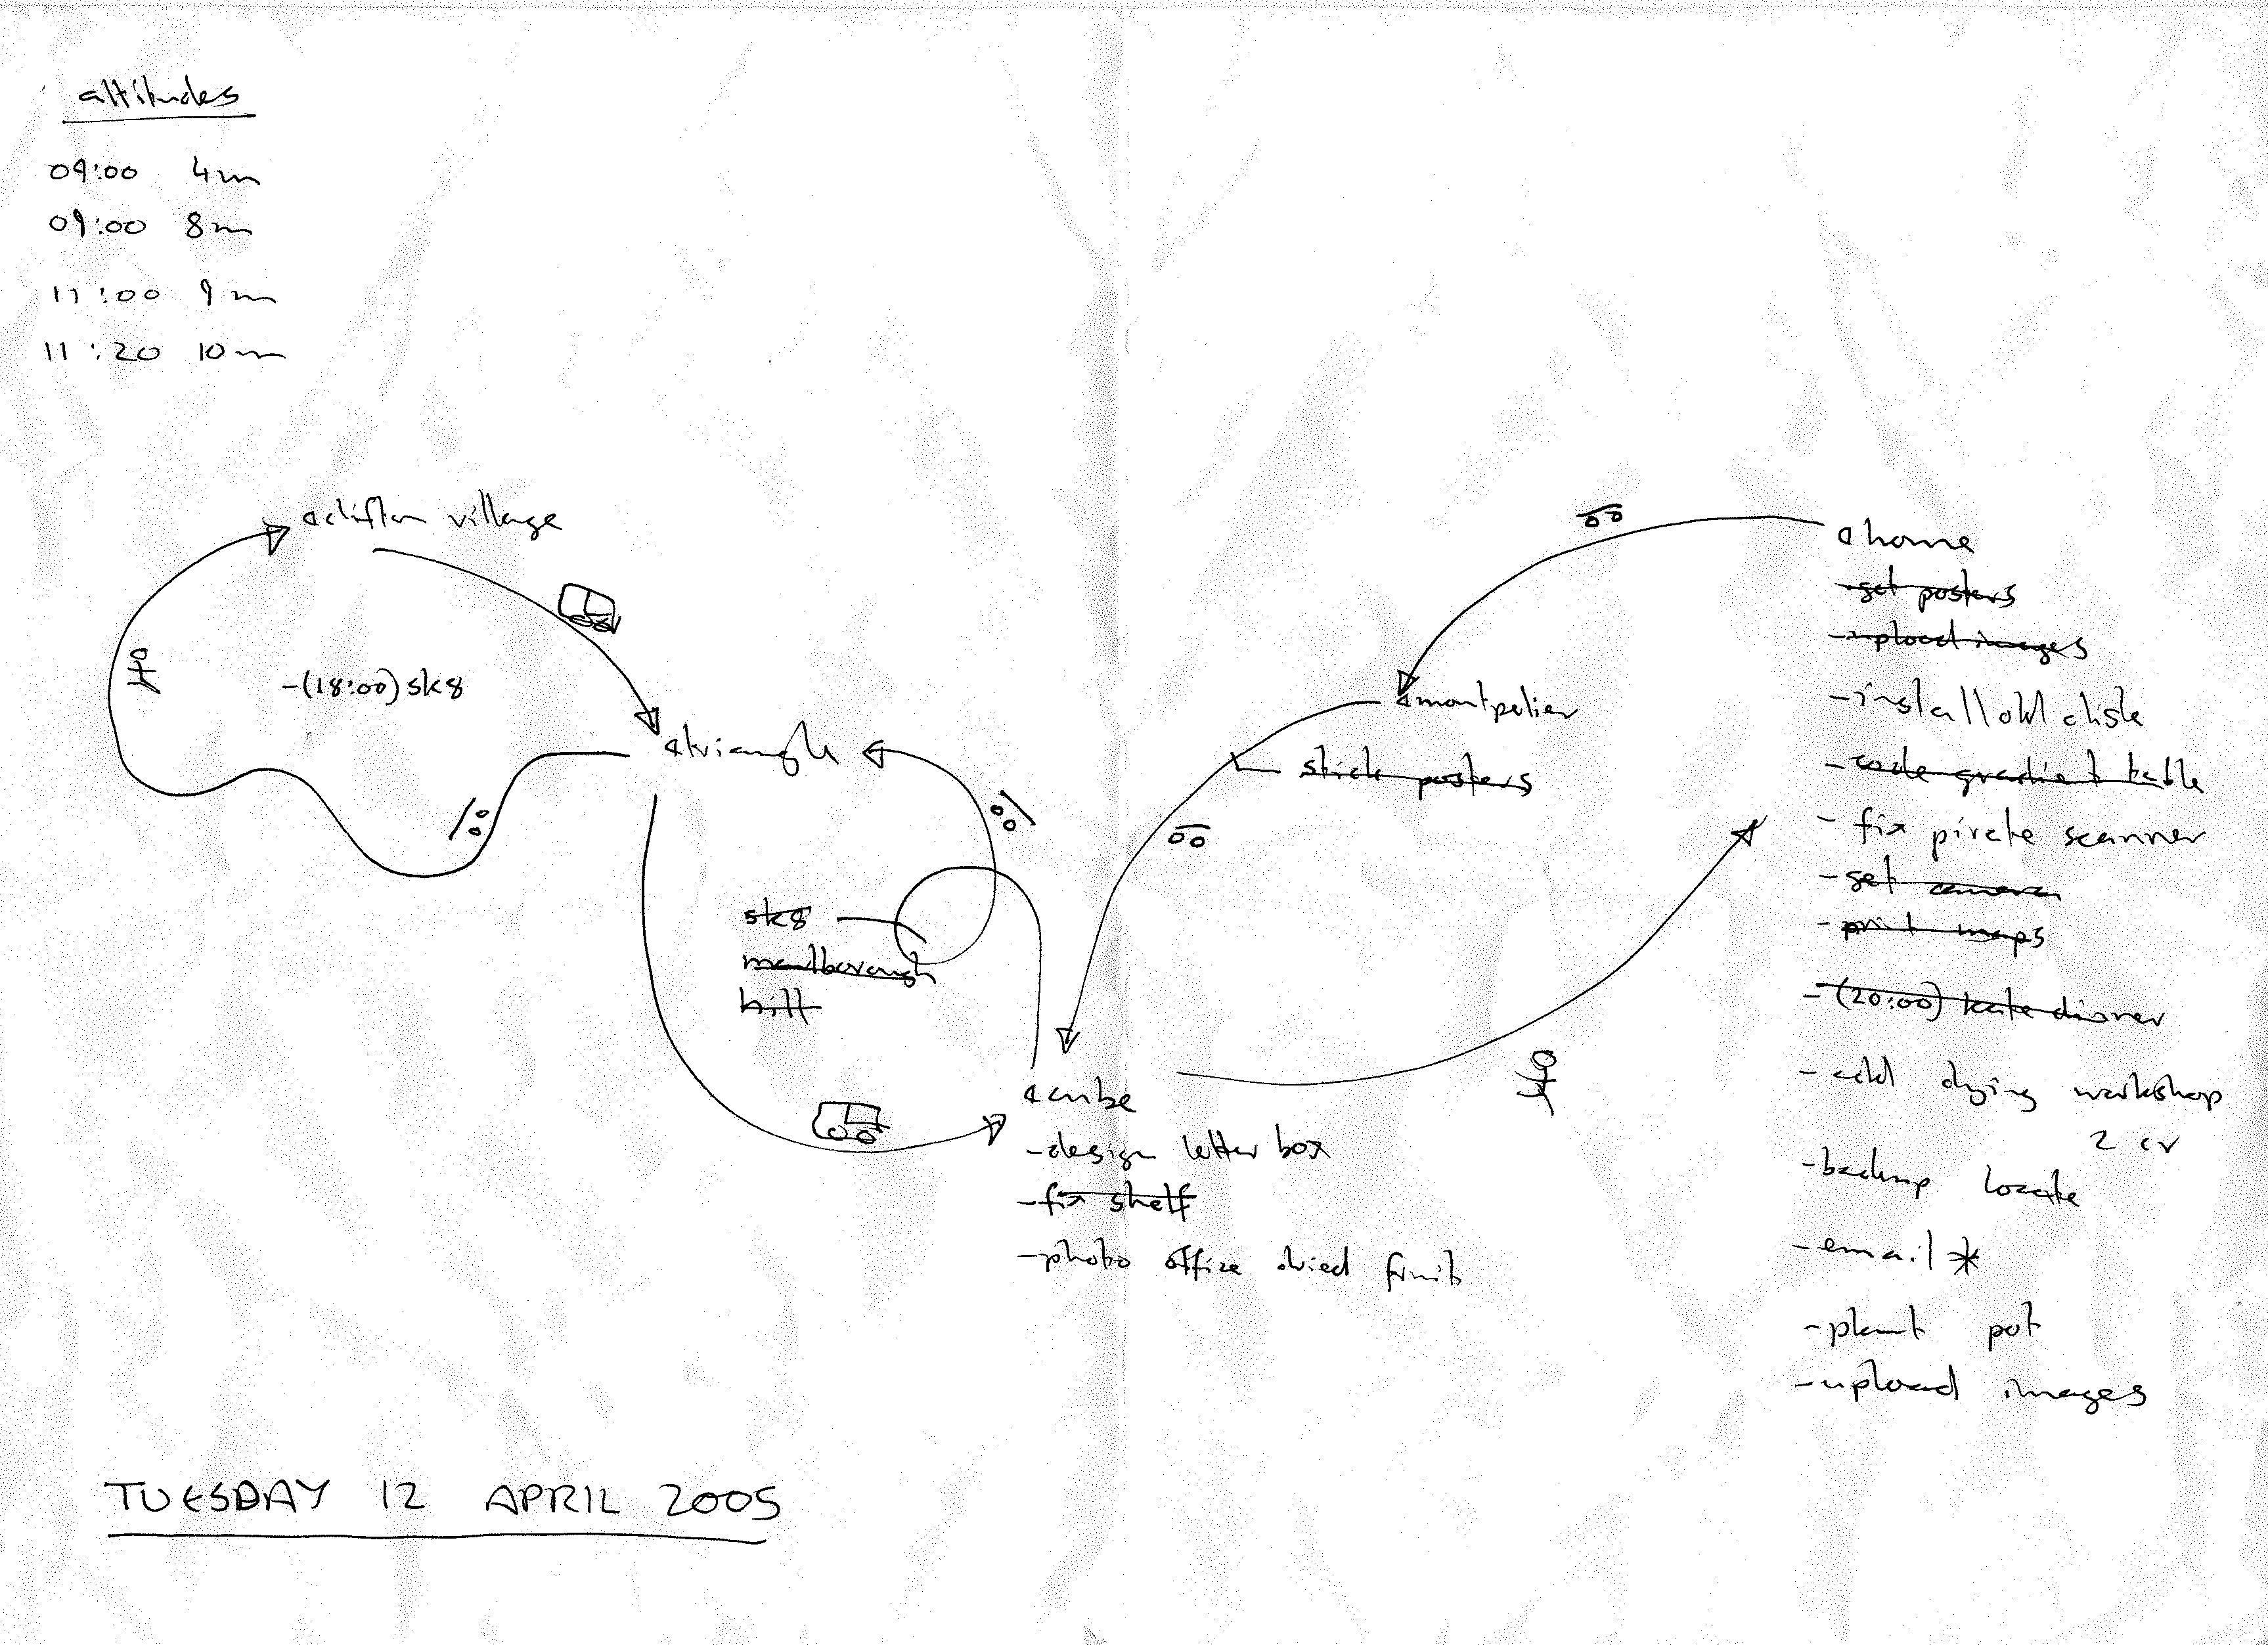 altitudes
09:00 4m
09:00 8m
11:00 9m
11:20 10m
@clifton village
-(18:00) sk8
@triangle
sk8
marlborough
hill
@montpelier
stick posters
@cube
-design letter box
-fix shelf
-photo office dried fruit
@home
-get posters
-upload images
-install old disk
-code gradient table
- fix pirate scanner
-get camera
-print maps
-(20:00) kate dinner
-add dying workshop
2 cv
-backup locate
-email *
-plant pot
-upload images
TUESDAY 12 APRIL 2005